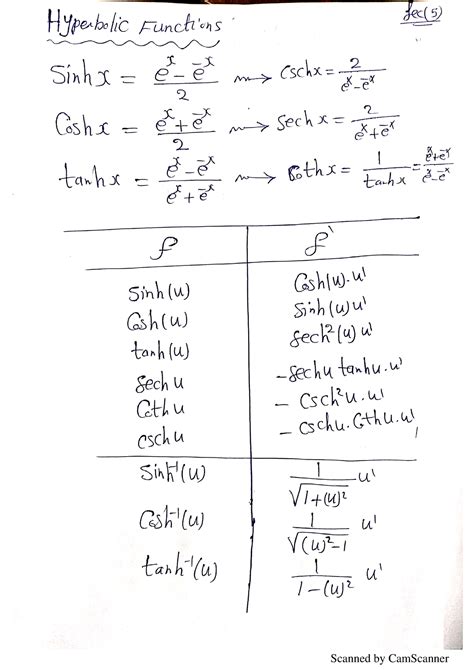 Hyperbolic Functions
Sec(5)
Sinhx = (e^x - e^-x)/2 ⟿ cschx = 2/(e^x - e^-x)
Coshx = (e^x + e^-x)/2 ⟿ sechx = 2/(e^x + e^-x)
tanhx = (e^x - e^-x)/(e^x + e^-x) ⟿ Cothx = 1/tanhx = (e^x + e^-x)/(e^x - e^-x)
f | f'
Sinh(u) | Cosh(u).u'
Cosh(u) | Sinh(u)u'
tanh(u) | Sech²(u)u'
Sech u | -Sechu tanhu.u'
Coth u | - Csch²u.u'
csch u | - cschu.Cothu.u'
Sinh⁻¹(u) | 1/√(1+(u)²) .u'
Cosh⁻¹(u) | 1/√((u)²-1) u'
tanh⁻¹(u) | 1/(1-(u)²) u'
Scanned by CamScanner